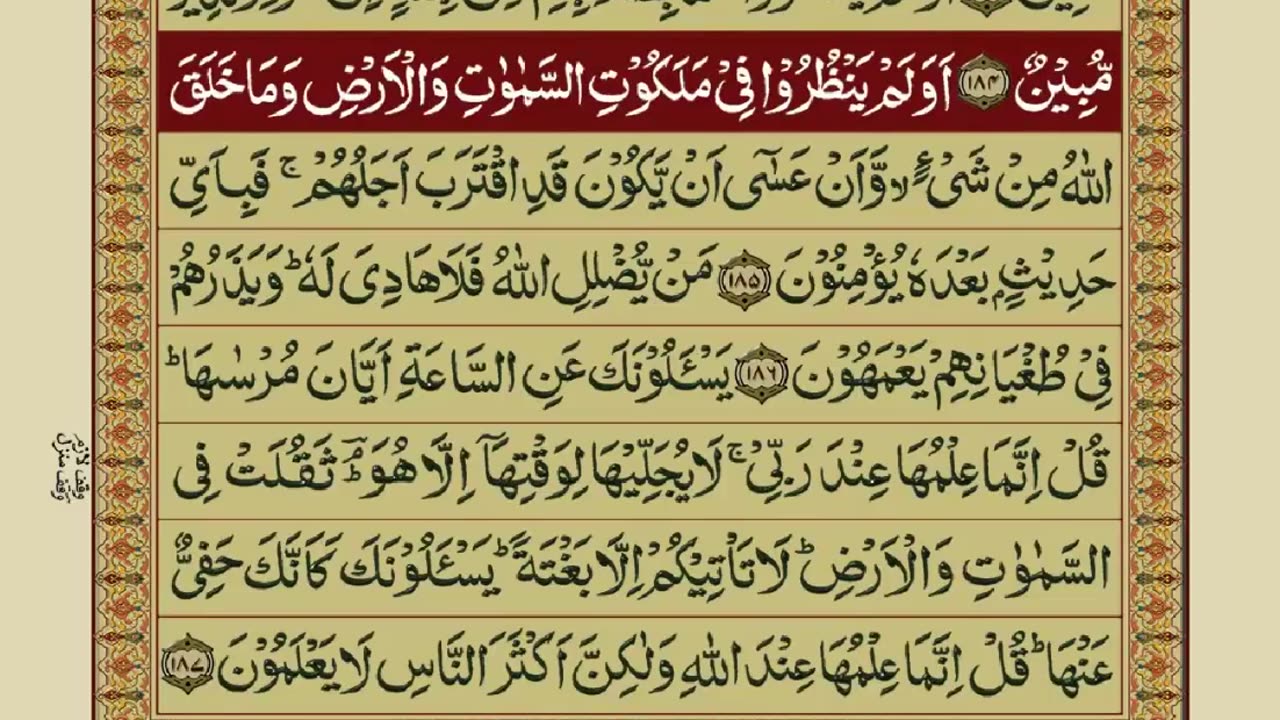 مُّبِيْنٌ ﴿۱۸۴﴾ اَوَلَمْ يَنْظُرُوْا فِيْ مَلَكُوْتِ السَّمٰوٰتِ وَالْاَرْضِ وَمَا خَلَقَ
اللّٰهُ مِنْ شَيْءٍ ۙ وَّاَنْ عَسٰۤى اَنْ يَّكُوْنَ قَدِ اقْتَرَبَ اَجَلُهُمْ ۚ فَبِاَيِّ
حَدِيْثٍۭ بَعْدَهٗ يُؤْمِنُوْنَ ﴿۱۸۵﴾ مَنْ يُّضْلِلِ اللّٰهُ فَلَا هَادِيَ لَهٗ ؕ وَيَذَرُهُمْ
فِيْ طُغْيَانِهِمْ يَعْمَهُوْنَ ﴿۱۸۶﴾ يَسْـَٔلُوْنَكَ عَنِ السَّاعَةِ اَيَّانَ مُرْسٰىهَا ؕ
قُلْ اِنَّمَا عِلْمُهَا عِنْدَ رَبِّيْ ۚ لَا يُجَلِّيْهَا لِوَقْتِهَاۤ اِلَّا هُوَ ؔؕ ثَقُلَتْ فِي
السَّمٰوٰتِ وَالْاَرْضِ ؕ لَا تَاْتِيْكُمْ اِلَّا بَغْتَةً ؕ يَسْـَٔلُوْنَكَ كَاَنَّكَ حَفِيٌّ
عَنْهَا ؕ قُلْ اِنَّمَا عِلْمُهَا عِنْدَ اللّٰهِ وَلٰكِنَّ اَكْثَرَ النَّاسِ لَا يَعْلَمُوْنَ ﴿۱۸۷﴾
وقف لازم
وقف منزل